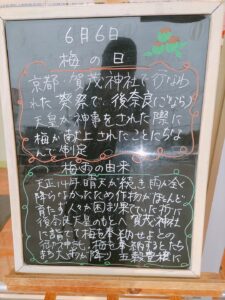 6月6日
梅の日
京都・賀茂神社で行なわ
れた葵祭で、後奈良(ごなら)
天皇が神事をされた際に
梅が献上されたことにちな
んで制定
梅雨の由来
天正14年 晴天が続き 雨が全く
降らなかったため作物がほんど
育たず 人々が困り果てていた
後奈良天皇のもとへ 賀茂神社
に詣でて 梅を奉納せよとの
梅を奉納するとたち
まち大雨が降り 五穀豊穣に